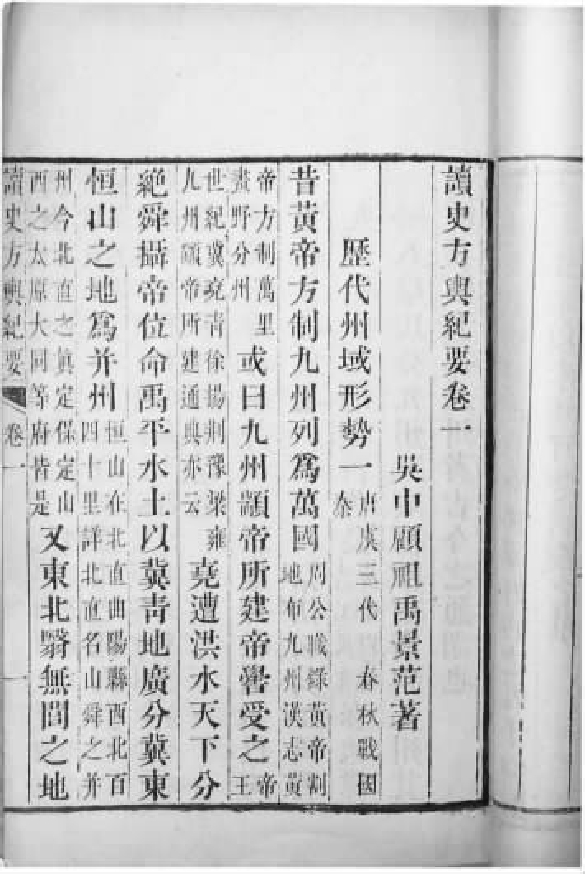 讀史方輿紀要卷一
吳中顧祖禹景范著
歷代州域形勢一 唐虞三代 春秋戰國 秦
昔黃帝方制九州列爲萬國 周公職錄黃帝割地布九州漢志黃
帝方制萬里畫野分州 或曰九州顓帝所建帝嚳受之 帝王
世紀冀兗青徐揚荆豫梁雍九州顓帝所建通典亦云 堯遭洪水天下分
絶舜攝帝位命禹平水土以冀靑地廣分冀東
恒山之地爲并州 恒山在北直曲陽縣西北百四十里詳北直名山舜之并
州今北直之眞定保定山西之太原大同等府皆是 又東北醫無閭之地
讀史方輿紀要 卷一 一